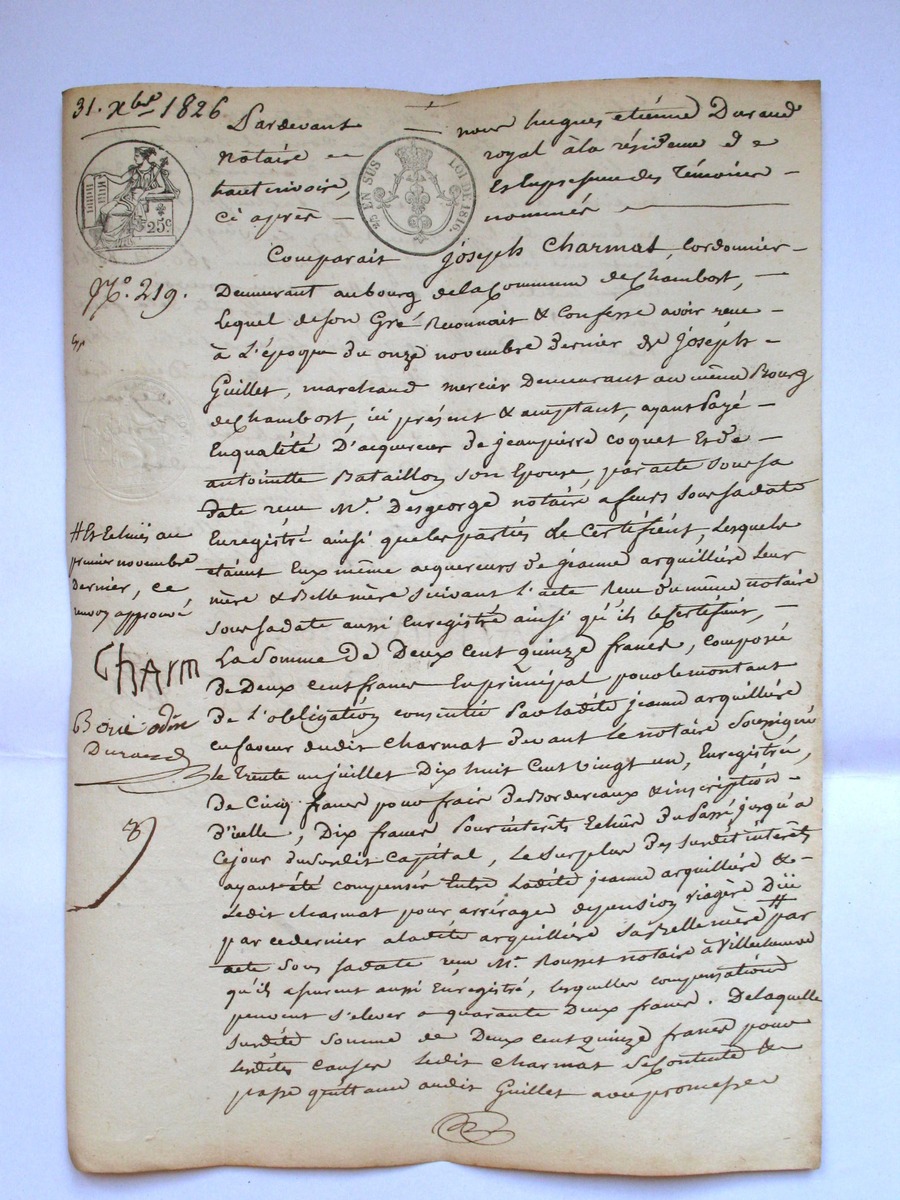 31. xbre 1826
Pardevant nous hugues etiénne Durand
notaire royal à la résidence d
hautrivoire, Et En presence des Témoins
ci après nommés
25 EN SUS
LOI DE 1816.
25c
Comparait joseph Charmat, cordonnier
No. 219.
Demeurant au bourg de la Commune de Chambost,
Lequel de son Gré Reconnait & Confesse avoir reçu
à L'époque du onze novembre dernier de joseph
Guillet, marchand mercier Demeurant au même Bourg
de Chambost, ici présent & acceptant, ayant Payé
En qualité D'acquereur de jean pierre coquet Et de
antoinette Bataillon son Epouse, par acte sous sa
date reçu Me. Desgeorge notaire a feurs sous sa date
Enregistré ainsi que les parties le Certifient, Lesquels
etaient Eux même acquereurs de jeanne arquillière Leur
mère & Belle mère suivant l'acte Reçu du même notaire
sous sa date aussi Enregistré ainsi qu'ils le Certifient,
La Somme de Deux cent quinze francs, composée
De Deux cent francs En principal pour le montant
De L'obligation consentie Par Ladite jeanne arquillière
en faveur dudit Charmat Devant Le notaire Soussigné
Le Trente un juillet Dix huit Cent vingt un, Enregistrée,
De Cinq francs pour frais de Bordereaux & inscription
D'icelle, Dix francs Pour intérêts Echus Du Passé jusqu'à
Ce jour dudit Capital, Le Surplus Des Susdit intérêts
ayant été compensés Entre Ladite jeanne arquillière &
Ledit charmat pour arrérages de pension viagère Due
par ce dernier a ladite arquillière sa Belle mère # par
acte sous sa date reçu Me. Rousset notaire à Villechenève
qu'ils assurent aussi Enregistré, lesquelles compensations
peuvent s'elever a quarante Deux francs. De laquelle
susdite somme de Deux cent quinze francs pour
lesdites causes Ledit Charmat se Contente &
passe quittance audit Guillet avec promesse
# Et Echus au
premier novembre
Dernier, ce
renvoy approuvé
CHARM
Durand